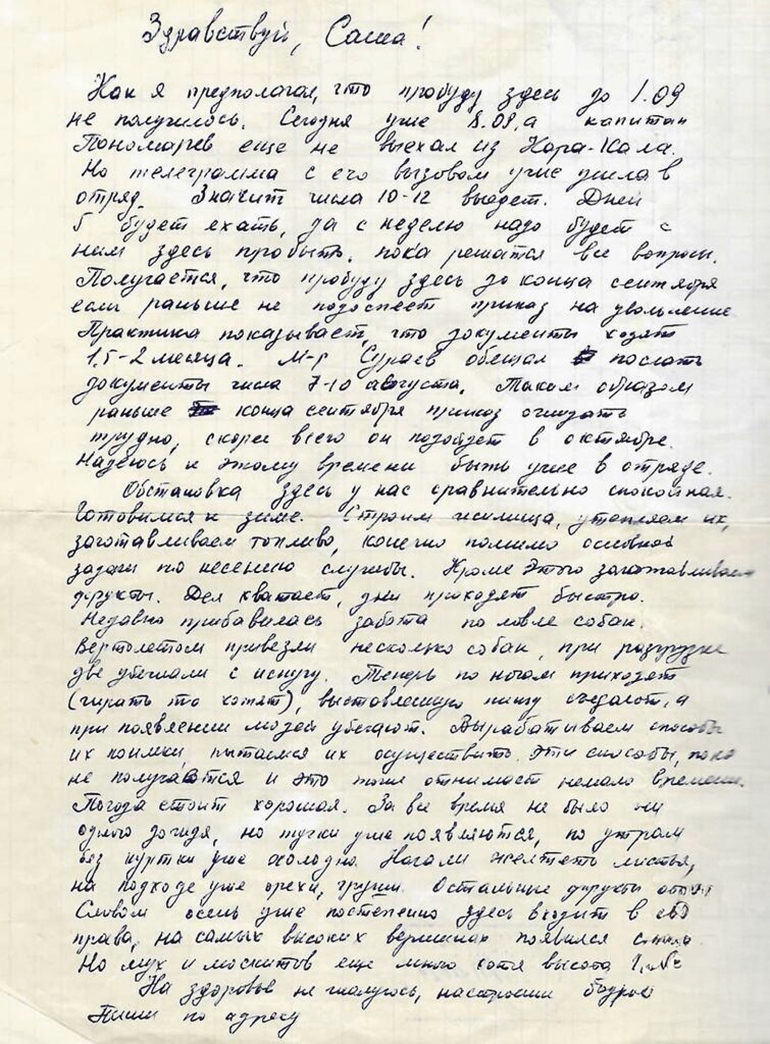 Здравствуй, Саша!
Как я предполагал, что пробуду здесь до 1.09
не получилось. Сегодня уже 8.09, а капитан
Пономарев еще не выехал из Кара-Кала.
Но телеграмма с его вызовом уже ушла в
отряд. Значит числа 10-12 выедет. Дней
5 будет ехать, да с неделю надо будет с
ним здесь пробыть, пока решатся все вопросы.
Получается, что пробуду здесь до конца сентября
если раньше не подоспеет приказ на увольнение
Практика показывает, что документы ходят
1,5-2 месяца. М-р Сураев обещал послать
документы числа 7-10 августа. Таким образом
раньше конца сентября приказ ожидать
трудно, скорее всего он подойдет в октябре.
Надеюсь к этому времени быть уже в отряде.
Обстановка здесь у нас сравнительно спокойная.
Готовимся к зиме. Строим жилища, утепляем их,
заготавливаем топливо, конечно помимо основной
задачи по несению службы. Кроме этого заготавливаем
фрукты. Дел хватает, дни проходят быстро.
Недавно прибавилась забота по ловле собак.
Вертолетом привезли несколько собак, при разгрузке
две убежали с испугу. Теперь по ночам приходят
(жрать то хотят), выставленную пищу съедают, а
при появлении людей убегают. Вырабатываем способы
их поимки, пытаемся их осуществить эти способы, пока
не получается и это тоже отнимает немало времени.
Погода стоит хорошая. За все время не было ни
одного дождя, но тучки уже появляются, по утрам
без куртки уже холодно. Начали желтеть листья,
на подходе уже орехи, груши. Остальные фрукты
Словом осень уже постепенно здесь входит в свои
права, на самых высоких вершинах появился
Но мух и москитов еще много хотя высота
На здоровье не жалуюсь, настроение бодрое
Пиши по адресу